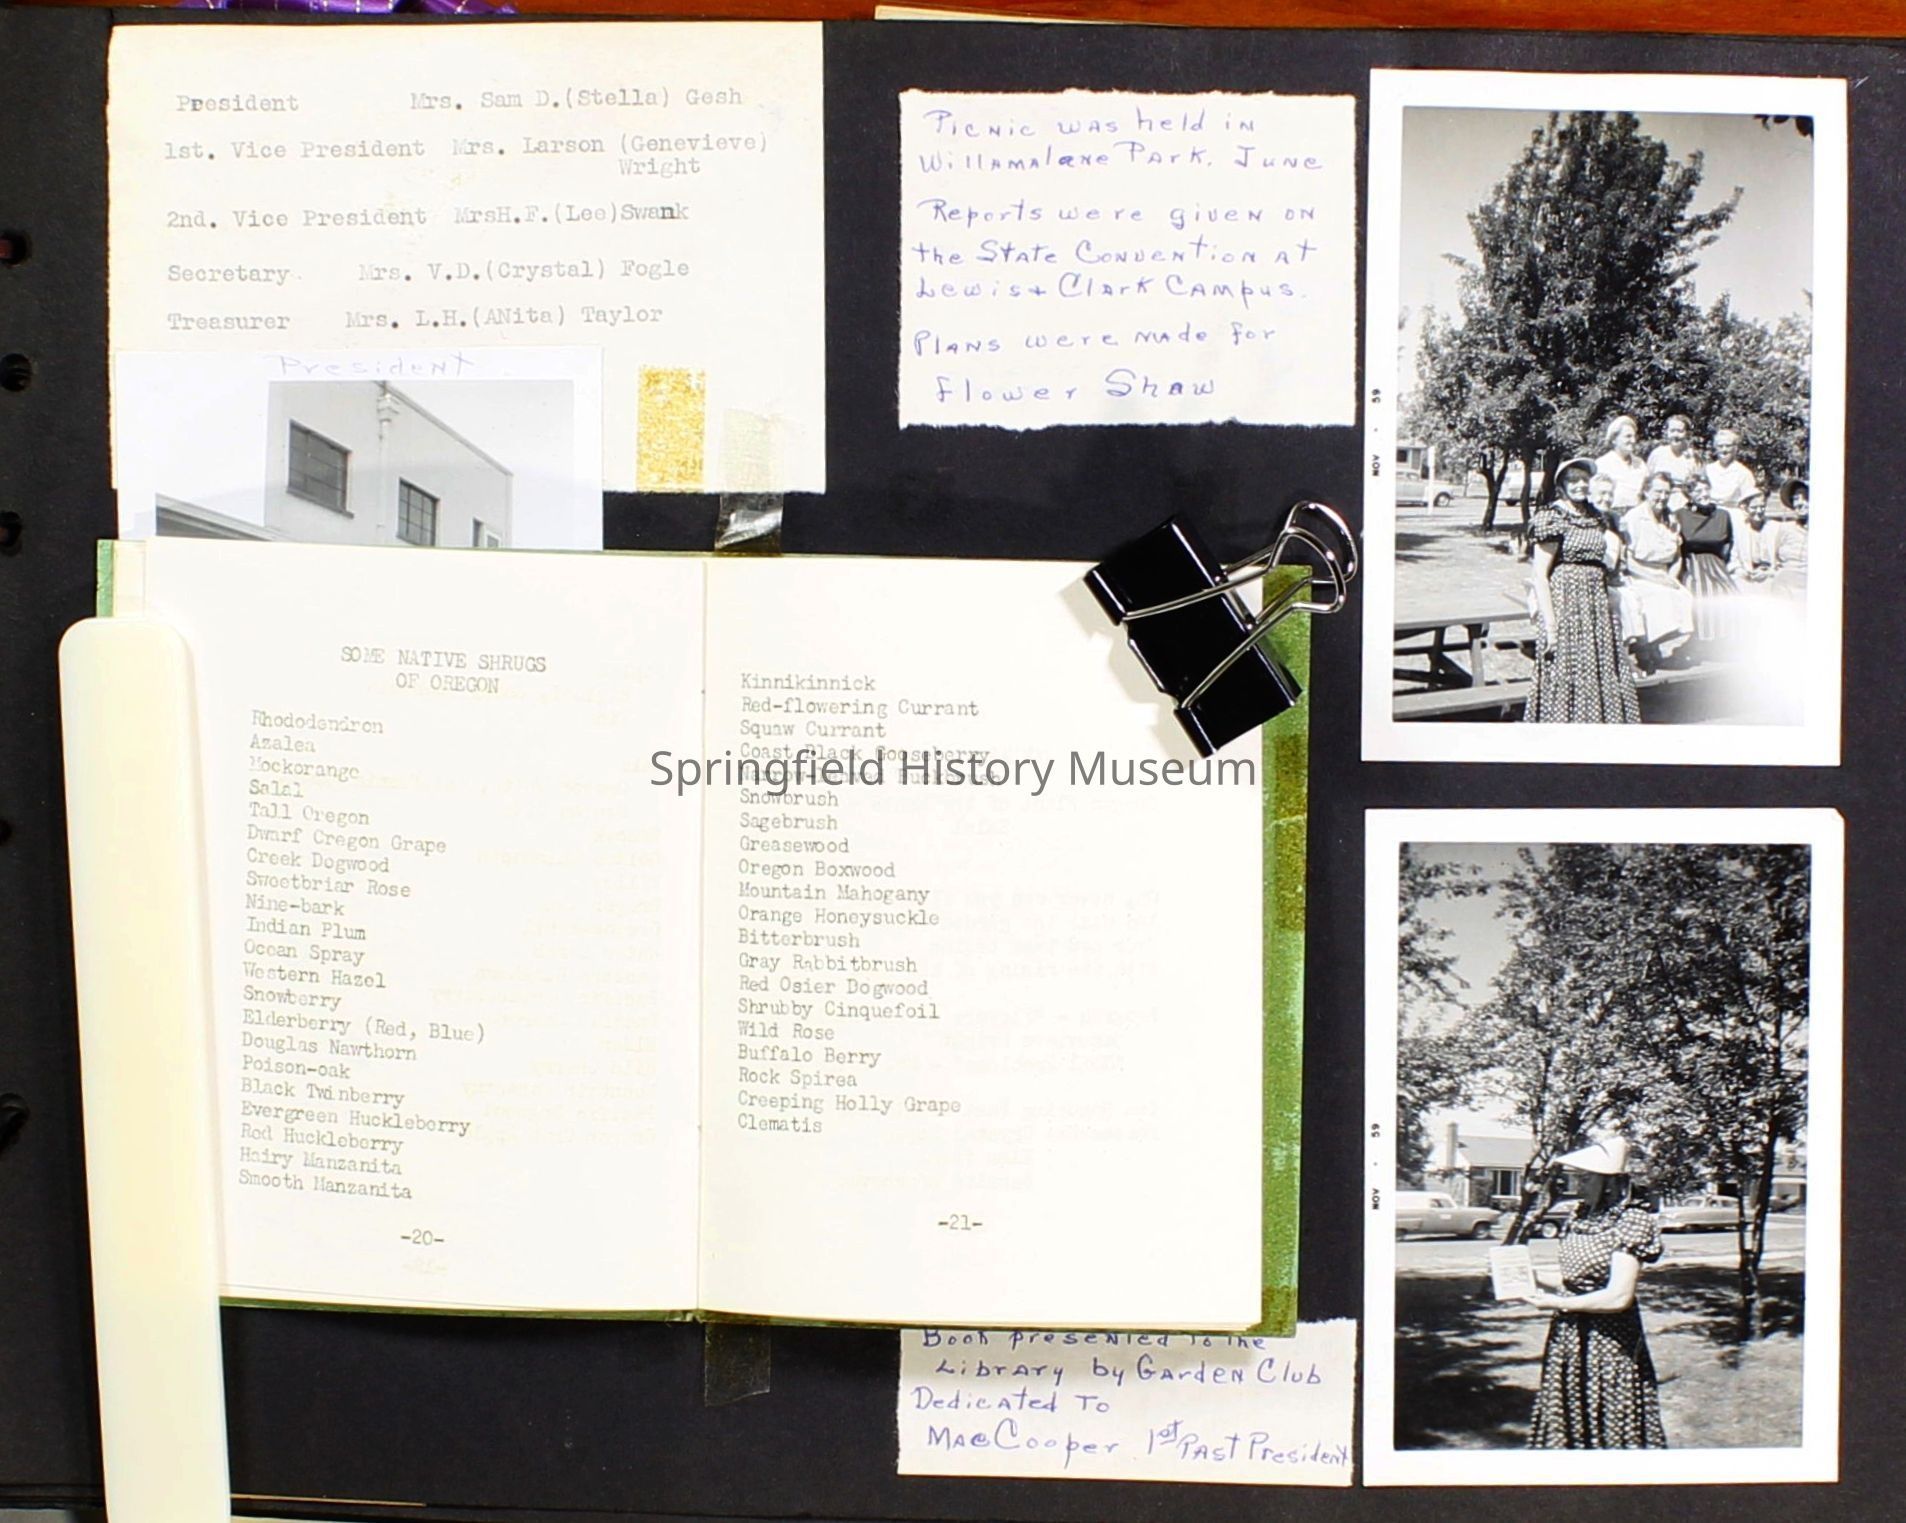 President Mrs. Sam D.(Stella) Gosh
1st. Vice President Mrs. Larson (Genevieve)
Wright
2nd. Vice President MrsH.F.(Lee)Swank
Secretary. Mrs. V.D.(Crystal) Fogle
Treasurer Mrs. L.H.(ANita) Taylor
President
Picnic was held in
Willamalane Park. June
Reports were given on
the State Convention at
Lewis + Clark Campus.
Plans were made for
Flower Show
NOV . 59
SOME NATIVE SHRUGS
OF OREGON
Rhododendron
Azalea
Mockorange
Salal
Tall Oregon
Dwarf Oregon Grape
Creek Dogwood
Sweetbriar Rose
Nine-bark
Indian Plum
Ocean Spray
Western Hazel
Snowberry
Elderberry (Red, Blue)
Douglas Nawthorn
Poison-oak
Black Twinberry
Evergreen Huckleberry
Red Huckleberry
Hairy Manzanita
Smooth Manzanita
-20-
Kinnikinnick
Red-flowering Currant
Squaw Currant
Coast Black Gooseberry
Springfield History Museum
Snowbrush
Sagebrush
Greasewood
Oregon Boxwood
Mountain Mahogany
Orange Honeysuckle
Bitterbrush
Gray Rabbitbrush
Red Osier Dogwood
Shrubby Cinquefoil
Wild Rose
Buffalo Berry
Rock Spirea
Creeping Holly Grape
Clematis
-21-
Book presented to the
Library by Garden Club
Dedicated To
Mae Cooper 1st Past President
NOV . 59